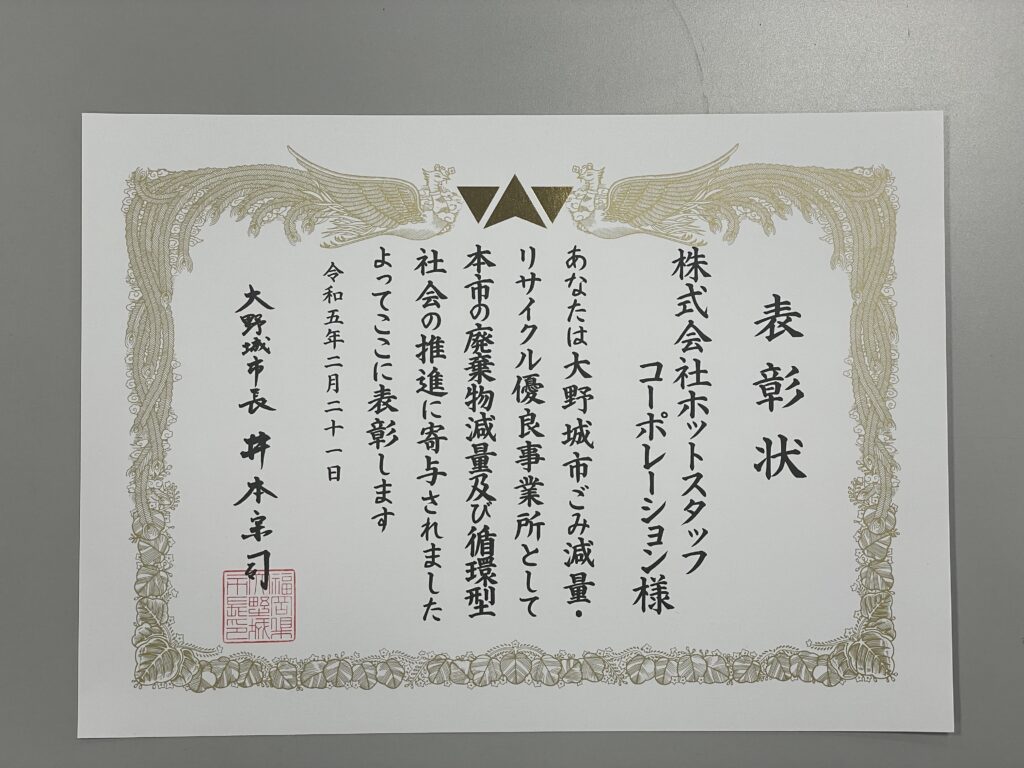 表彰状
株式会社ホットスタッフ
コーポレーション様
あなたは大野城市ごみ減量・
リサイクル優良事業所として
本市の廃棄物減量及び循環型
社会の推進に寄与されました
よってここに表彰します
令和五年二月二十一日
大野城市長 井本宗司
福岡県
大野城
市長印